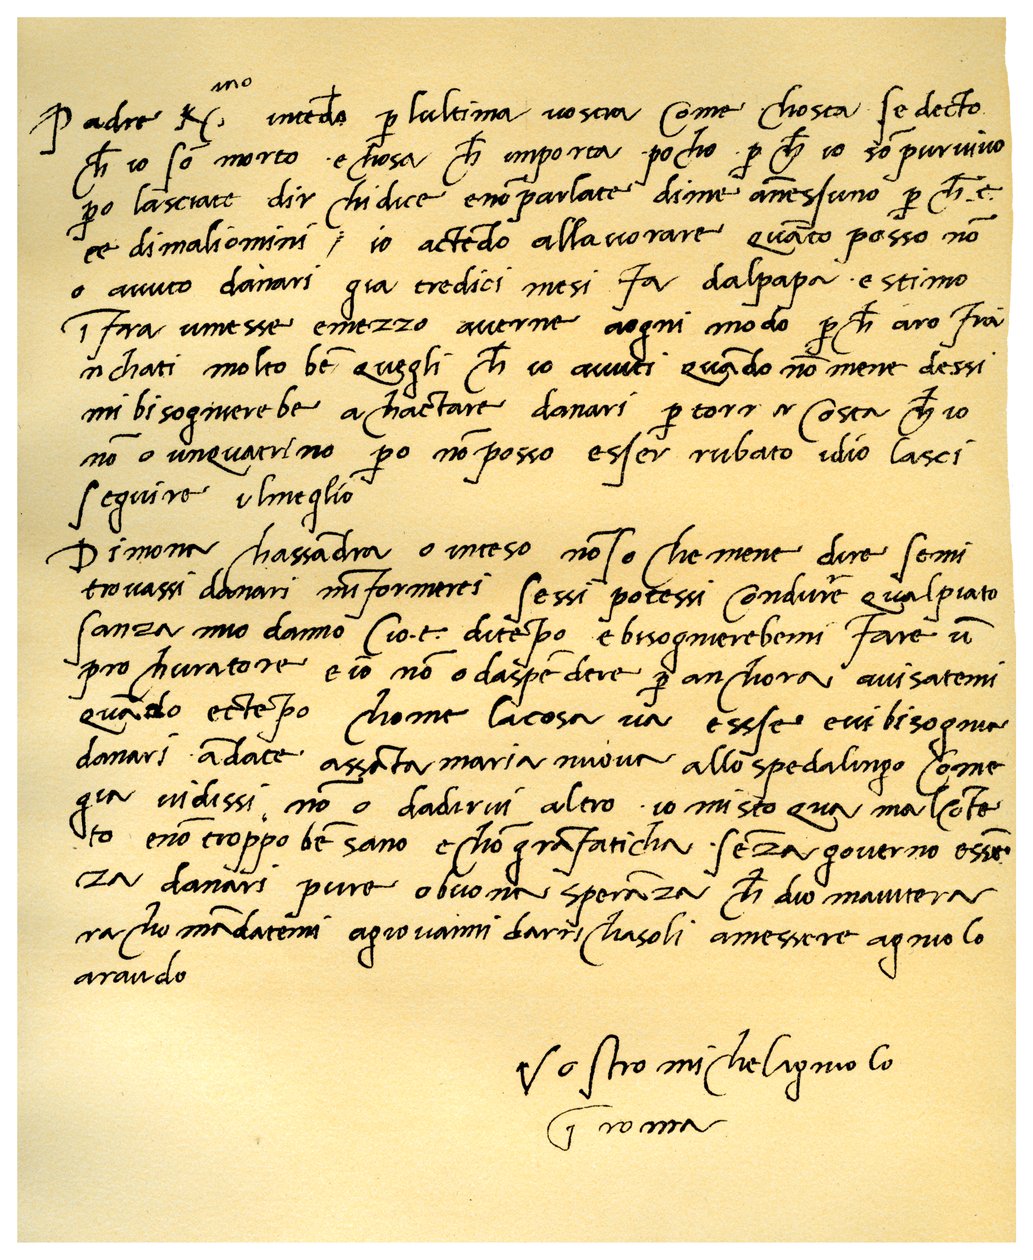 Padre Kr. mo intēdo p̱ lultima vostra Come chosta se decto
ch̄ io sō morto e chosa ch̄ importa pocho p̱ ch̄ io sō pur vivo
p̱o lasciate dir chi dice e nō parlate di me a nessuno p̱ ch̄ e
ce di mali omini / io actēdo allavorare quāto posso nō
o avuto danari gia tredici mesi fa dal papa e stimo
ī fra un mese e mezzo averne a ogni modo p̱ ch̄ aro fra
nchati molto bē quegli ch̄ io avuti quādo nō me ne dessi
mi bisogniere be achactare danari p̱ torr a Costa ch̄ io
nō o un quatrino p̱o nō posso esser rubato idio lasci
seguire il meglio
Di mona chassādra o inteso nō so che me ne dire se mi
trovassi danari mīformerei sessi potessi Condurre qua l piato
sanza mio danno Cioe di tēpo e bisognierebemi fare ū
prochuratore e io nō o da spēdere p̱ anchora avisatemi
quādo e ctēpo chome la cosa va essse e vi bisognia
danari ādate assāta maria nuova allo spedalingo Come
gia vi dissi nō o da dirvi altro io mi sto qua mal cōtē
to e nō troppo bē sano e chō grā faticha sēza governo e ssē
za danari pure o buona sperāza ch̄ dio maiutera
rachomādatemi a giovanni da richasoli a messere agniolo
araldo
Vostro michelagniolo
ī roma